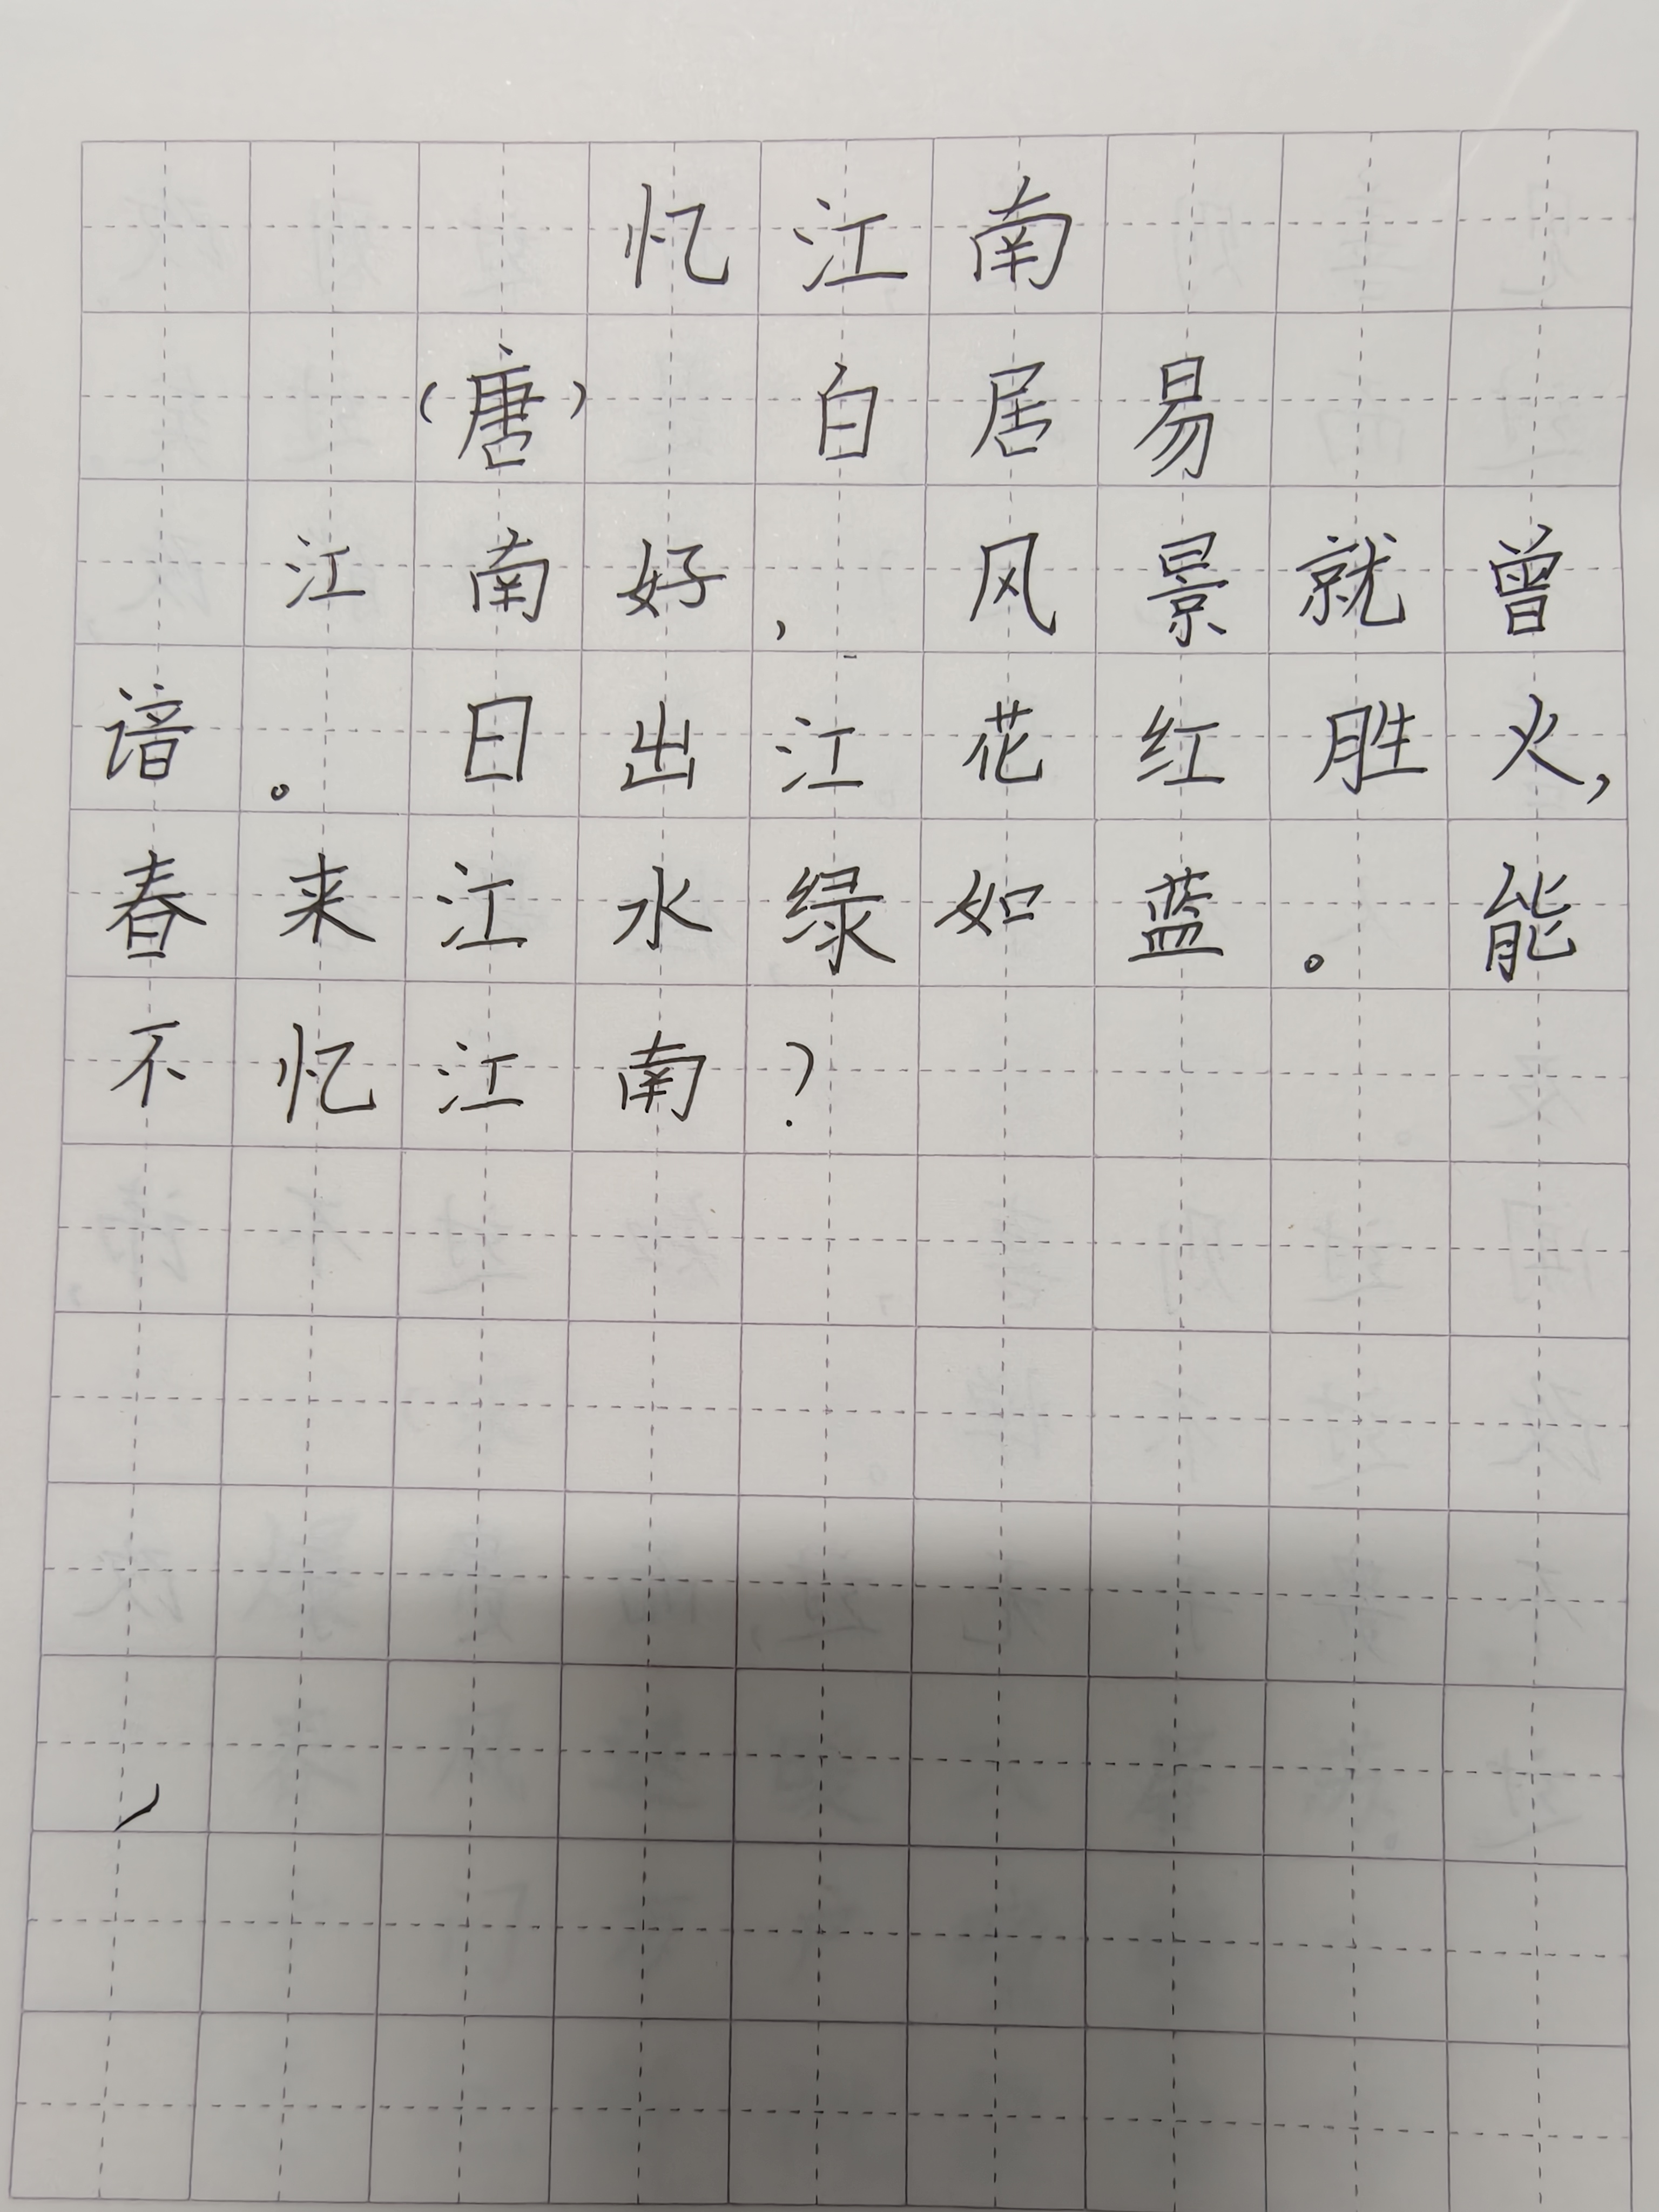 忆江南
（唐） 白居易
江南好， 风景就曾
谙。 日出江花红胜火，
春来江水绿如蓝。 能
不忆江南？